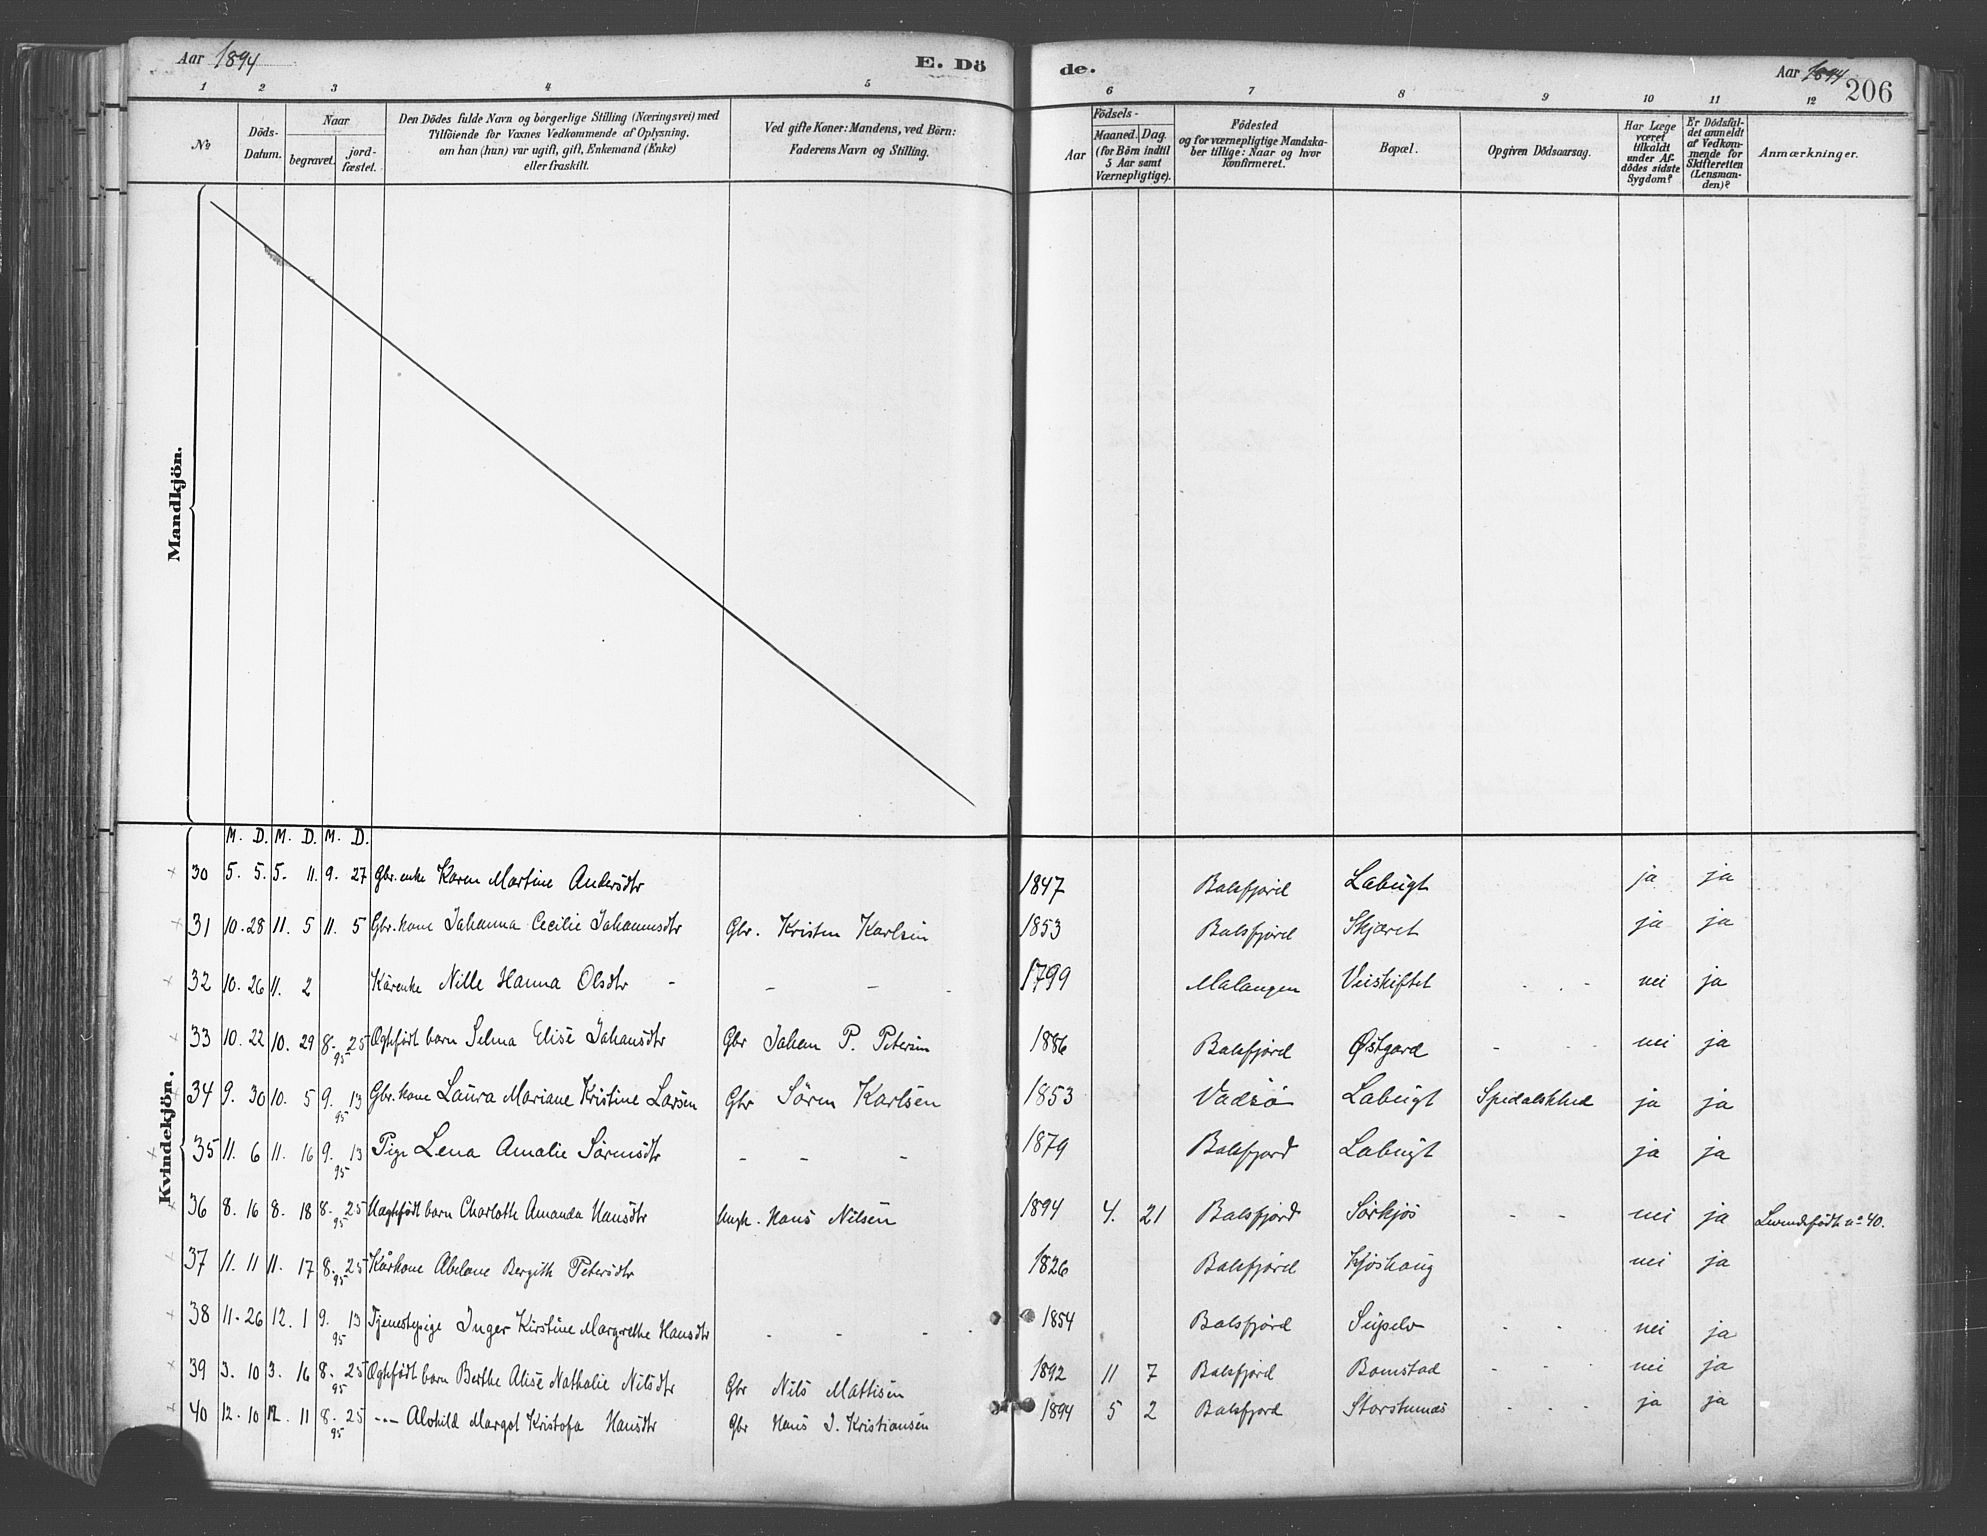 Aar 1894 E. Dö de. Aar 1894 206
1 2 3 4 5 6 7 8 9 10 11 12
№ Döds-Datum. Naar begravet. jordfæstet. Den Dödes fulde Navn og borgerlige Stilling (Næringsvei) med Tilföiende for Voxnes Vedkommende af Oplysning, om han (hun) var ugift, gift, Enkemand (Enke) eller fraskilt. Ved gifte Koner: Mandens, ved Börn: Faderens Navn og Stilling. Födsels- Aar Maaned. Dag. (for Börn indtil 5 Aar samt Værnepligtige). Födested og for værnepligtige Mandskaber tillige: Naar og hvor konfirmeret. Bopæl. Opgiven Dödsaarsag. Har Læge været tilkaldt under Afdödes sidste Sygdom? Er Dödsfaldet anmeldt af Vedkommende for Skifteretten (Lensmanden)? Anmærkninger.
Mandkjön.
Kvindekjön.
M. D. M. D. M. D.
30 5. 5. 5. 11. 9. 27 Gbr. enke Karen Martine Andersdtr 1847 Balsfjord Labugt ja ja
31 10. 28 11. 5 11. 5 Gbr. kone Johanna Cecilie Johannesdtr Gbr. Kristen Karlsen 1853 Balsfjord Skjæret ja ja
32 10. 26 11. 2 Kårenke Nille Hanna Olsdtr - - - 1799 Malangen Veiskiftet - - - nei ja
33 10. 22 10. 29 8. 25 95 Ægtefødt barn Selma Elise Johansdtr Gbr Johan P. Petersen 1886 Balsfjord Østgard - - - nei ja
34 9. 30 10. 5 9. 13 95 Gbr. kone Laura Mariane Kristine Larsen Gbr Sören Karlsen 1853 Vadsø Labugt Spedalskhed ja ja
35 11. 6 11. 16 9. 13 95 Pige Lena Amalie Sörensdtr - - - 1879 Balsfjord Labugt ja ja
36 8. 16 8. 18 8. 25 95 Uægtefødt barn Charlotte Amanda Hansdtr Ungk. Hans Nilsen 1894 4. 21 Balsfjord Sörkjos - - nei ja Levendefødte no 40.
37 11. 11 11. 17 8. 25 95 Kårkone Abelone Bergith Petersdtr 1826 Balsfjord Kjøshaug nei ja
38 11. 26 12. 1 9. 13 95 Tjenestepige Inger Kirstine Margrethe Hansdtr - - - 1854 Balsfjord - - - nei ja
39 3. 10 3. 16 8. 25 95 Ægtefødt barn Berthe Alise Nathalie Nilsdtr Gbr Nils Mattisen 1892 11 7 Balsfjord Bomstad - - - nei ja
40 12. 10 12. 11 8. 25 95 -"- Alvhild Margot Kristofa Hansdtr Gbr Hans J. Kristiansen 1894 5 2 Balsfjord Storstennes - - - ja ja